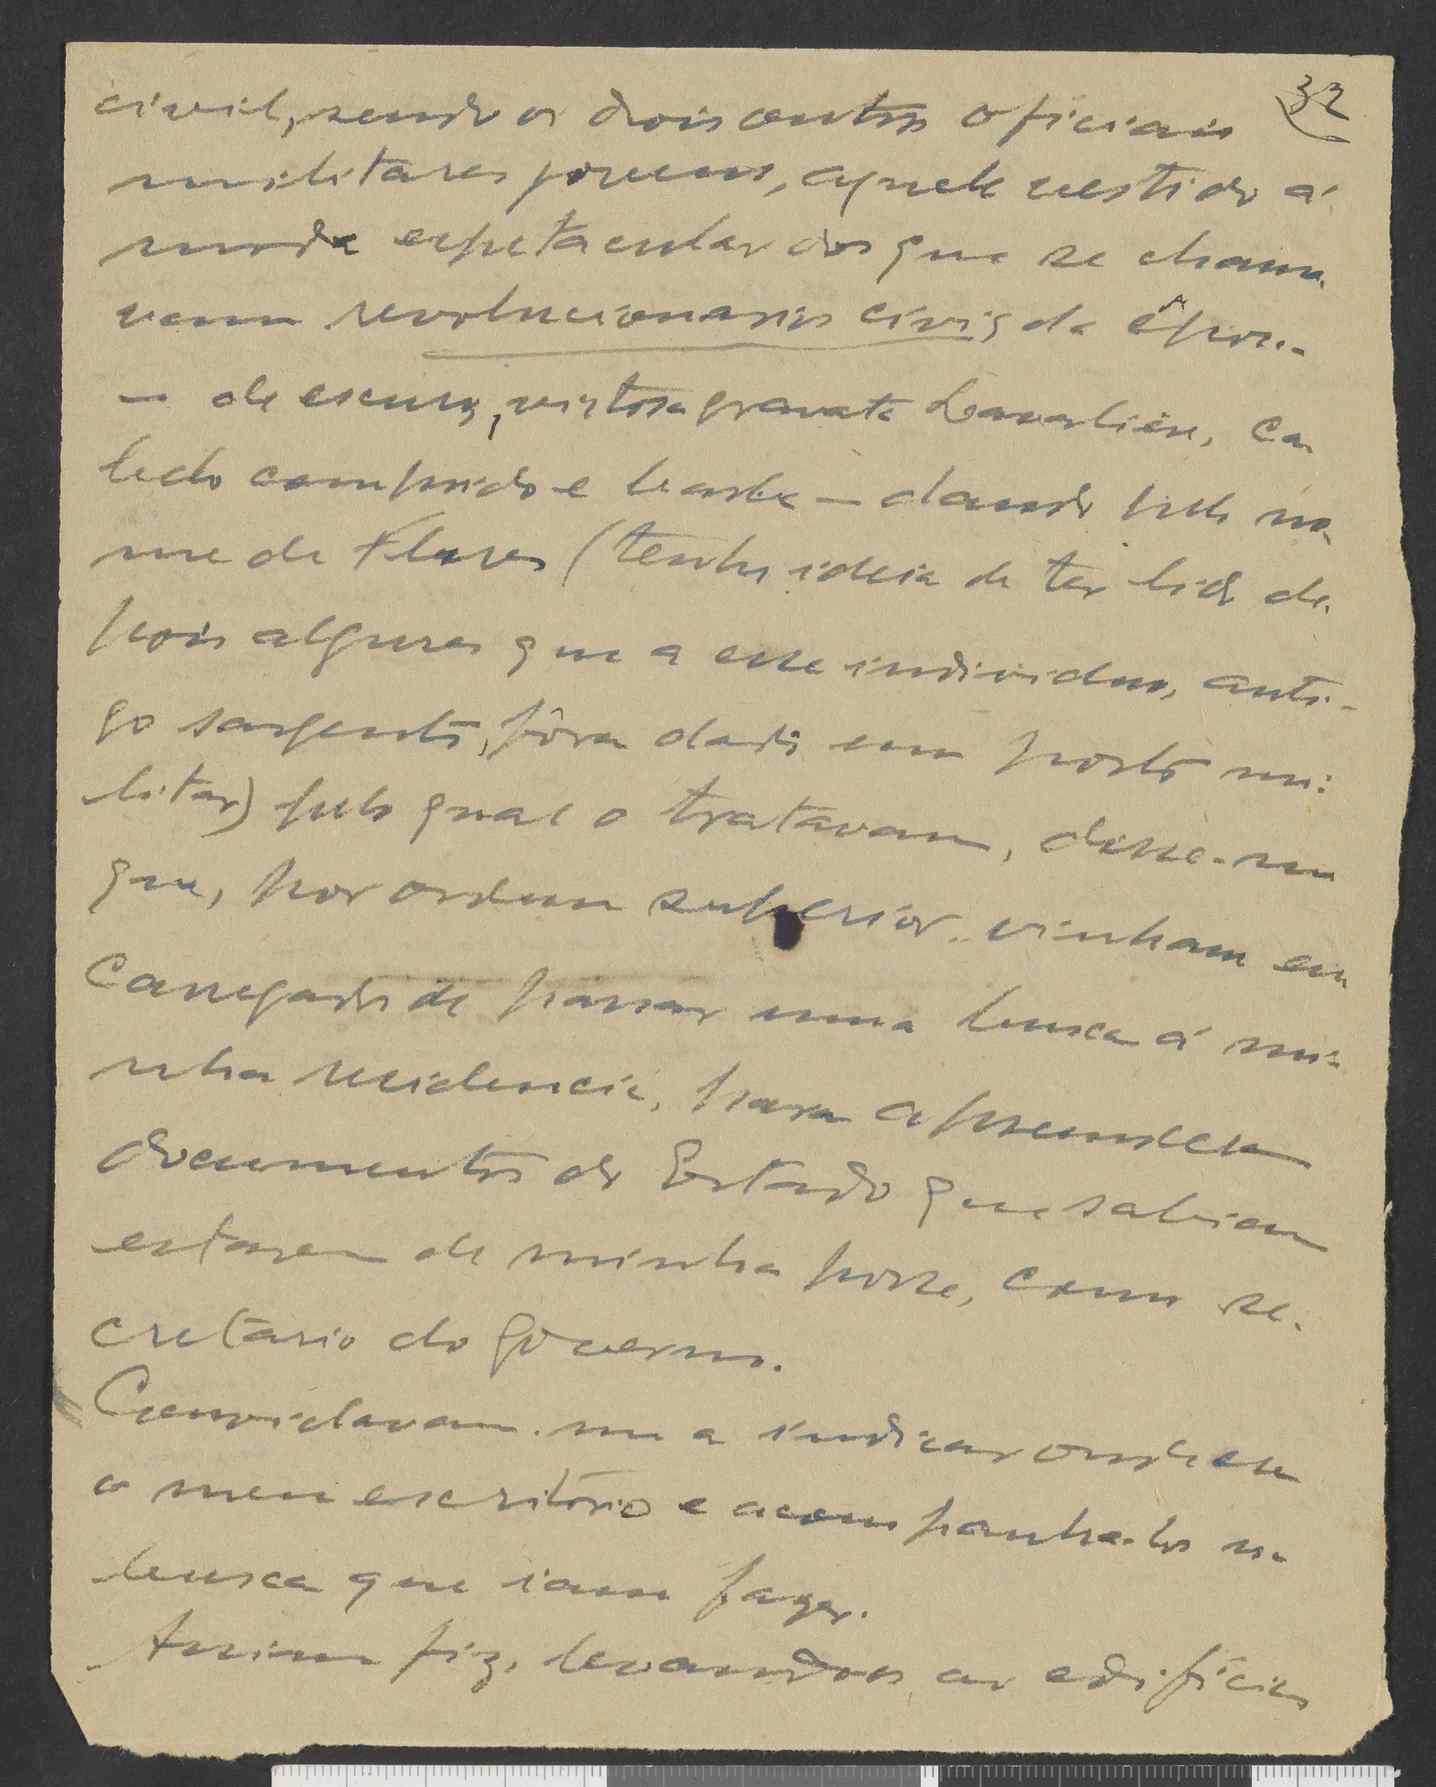 32
civil, sendo os dois outros oficiais
militares jovens, aquele vestido á
moda espetacular dos que se chama-
vam revolucionarios civis da época
— de escuro, vistosa gravata Lavaliére, ca-
belo comprido e barba — dando pelo no-
me de Flores (tenho ideia de ter lido de-
pois algures que a esse individuo, anti-
go sargento, fôra dado um posto mi-
litar) pelo qual o tratavam, disse-me
que, por ordem superior vinham en-
carregados de passar uma busca á mi-
nha residencia, para apreender
documentos do Estado que sabiam
estarem de minha posse, como se-
cretario do governo.
Convidavam-me a indicar onde era
o meu escritório e acompanha-los na
busca que iam fazer.
Assim fiz, levando-os ao edificio